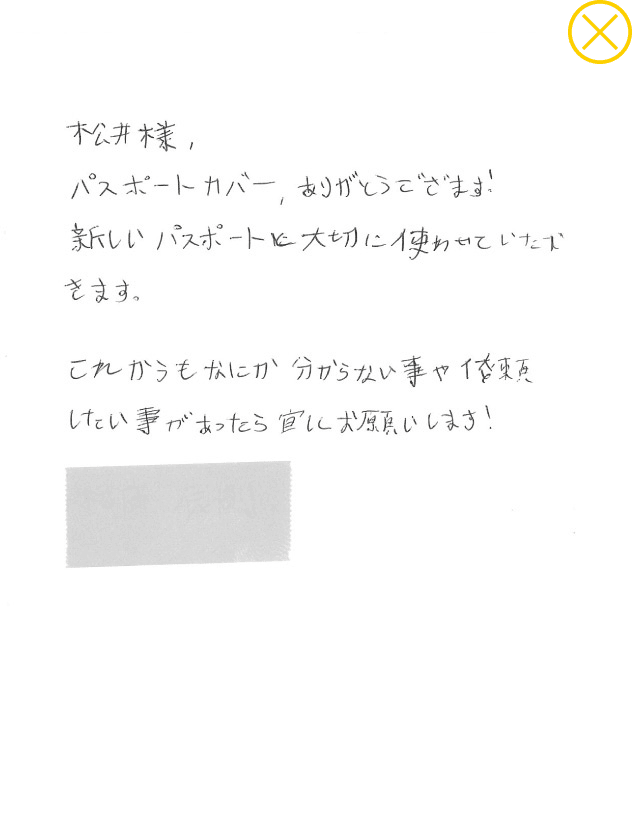 松井様,
パスポートカバー, ありがとうござます!
新しいパスポートと大切に使わせていただ
きます。
これからもなにか分からない事や依頼
したい事があったら宜しくお願いします!